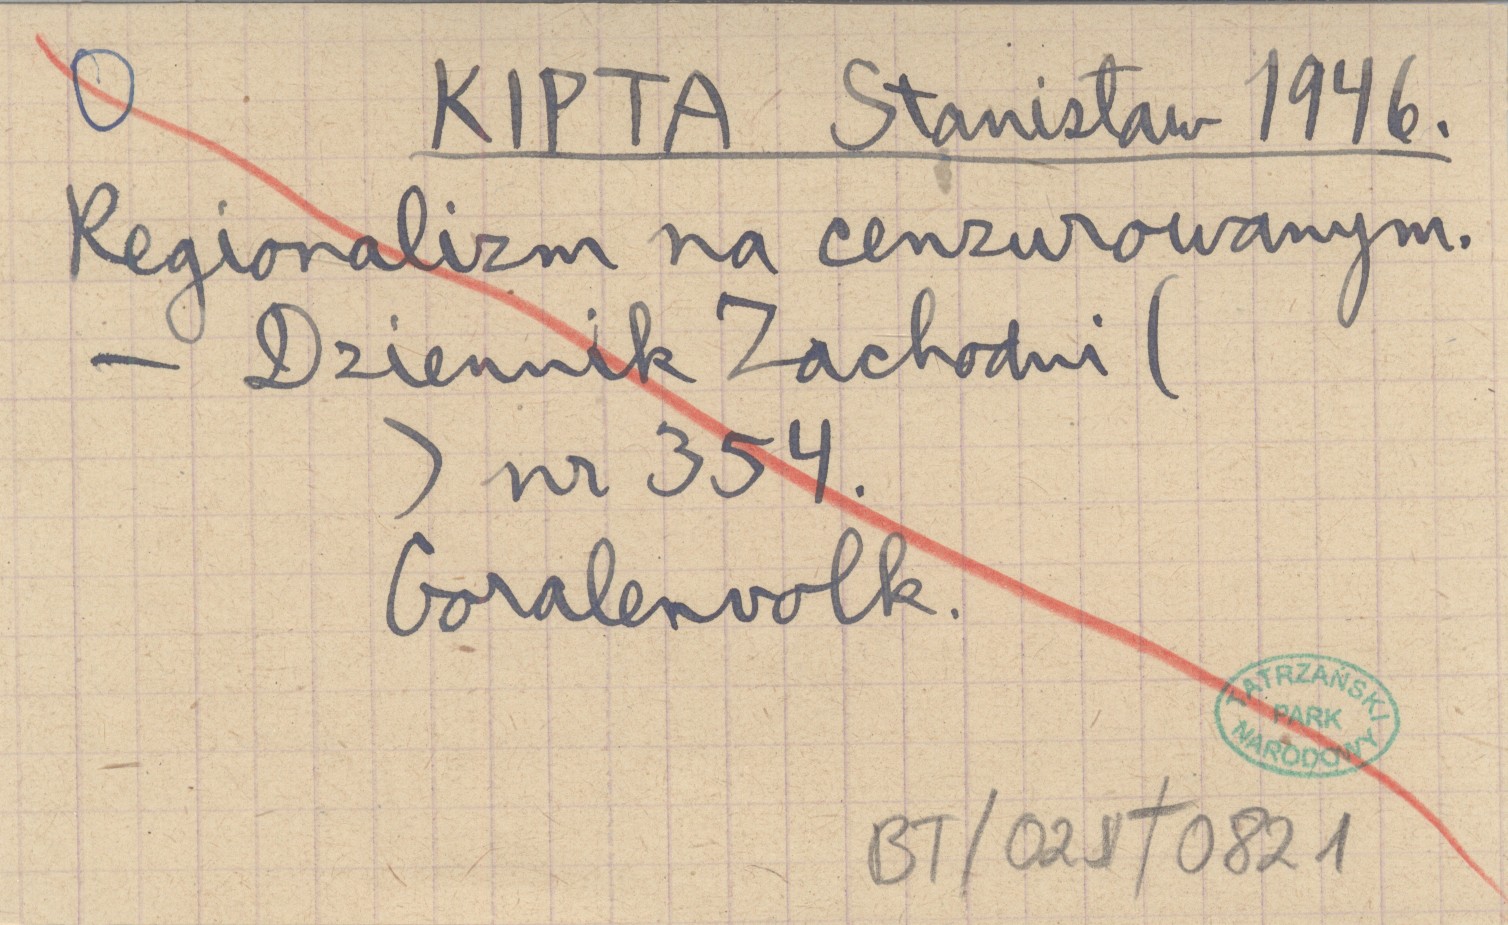 O KIPTA Stanisław 1946.
Regionalizm na cenzurowanym.
— Dziennik Zachodni (
) nr 354.
Goralenvolk.
TATRZAŃSKI
PARK
NARODOWY
0821